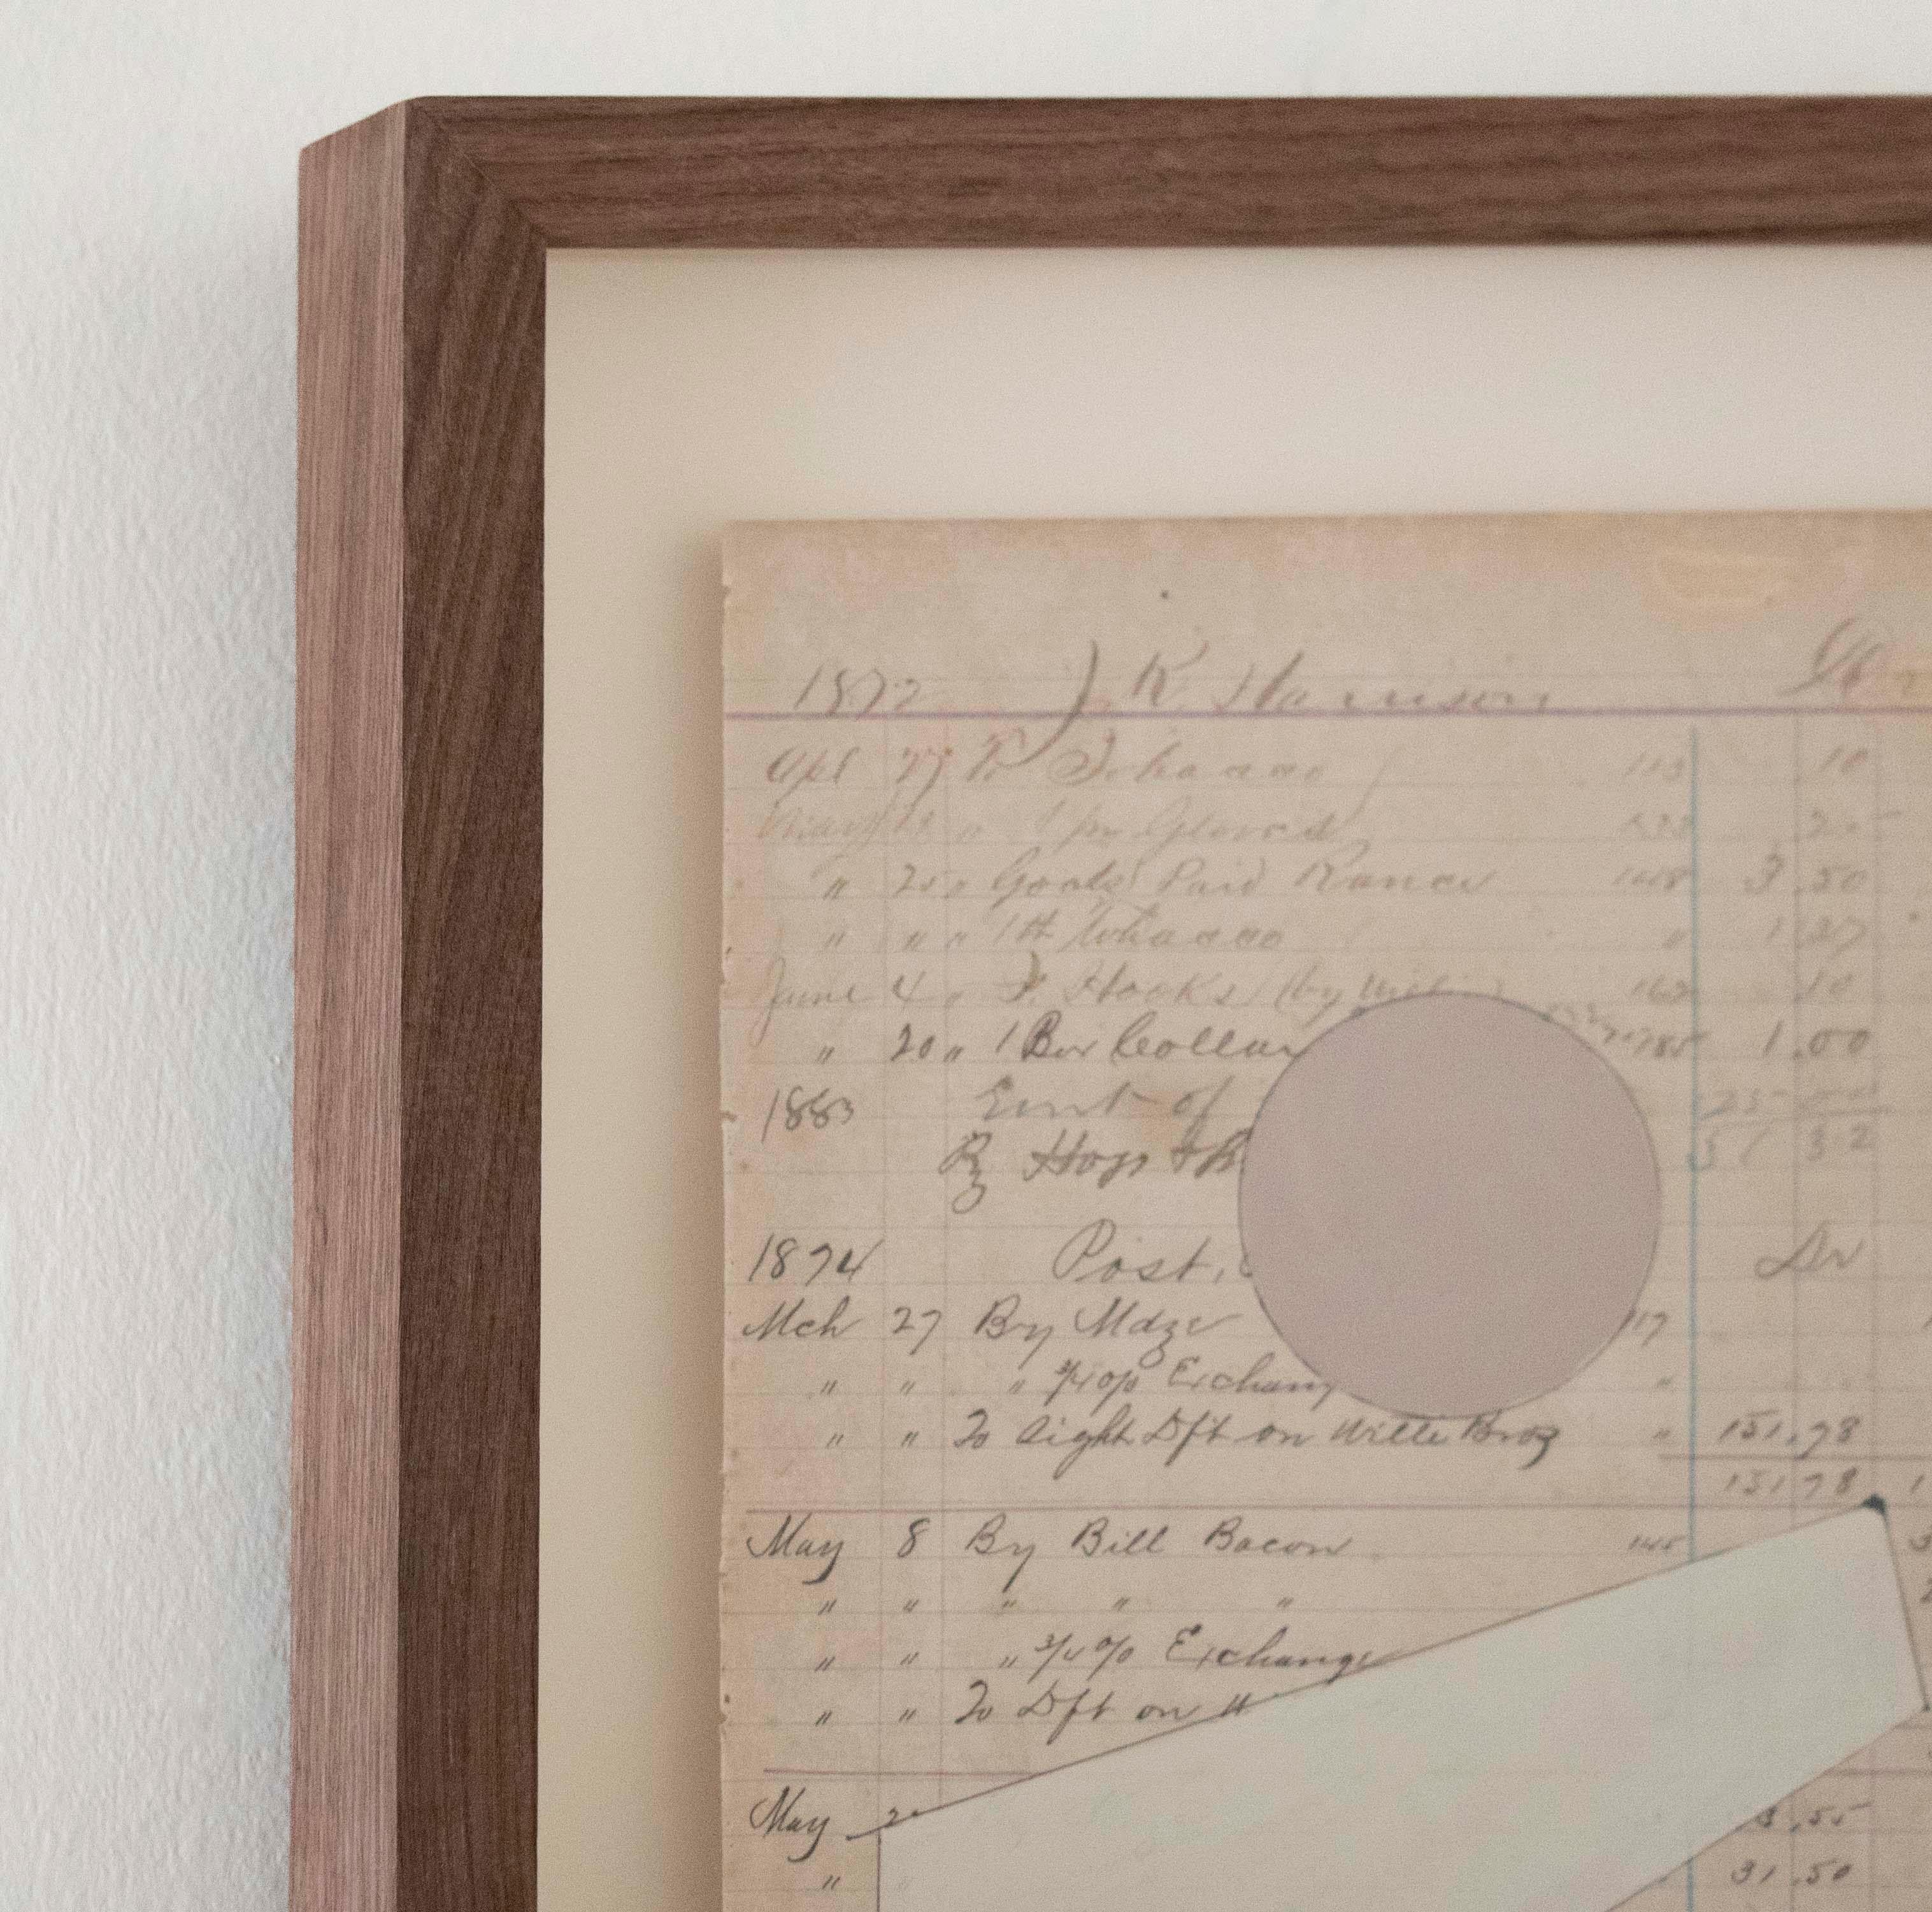 1872 J. K Harrison
Apl 27 To Tobacco 10
May " 1 pr Gloves 25
" 25 " Goods Paid Rance 1448 3.50
" " " 1 lb Tobacco " 1.27
June 4 " F. Hooks (by 163 10
" 20 " 1 Box Collar 785 1.00
1883 Emt of 25
By Hogs & 51 32
1874 Post. Dr
Mch 27 By Mdze 117
" " " 3/4 o/o Exchang "
" " To Sight Dft on Witte Broz " 151.78
151 78 1
May 8 By Bill Bacon 145
" " " " "
" " " 3/4 o/o Exchange
" " To Dft on
May 2
3.55
" 31.50